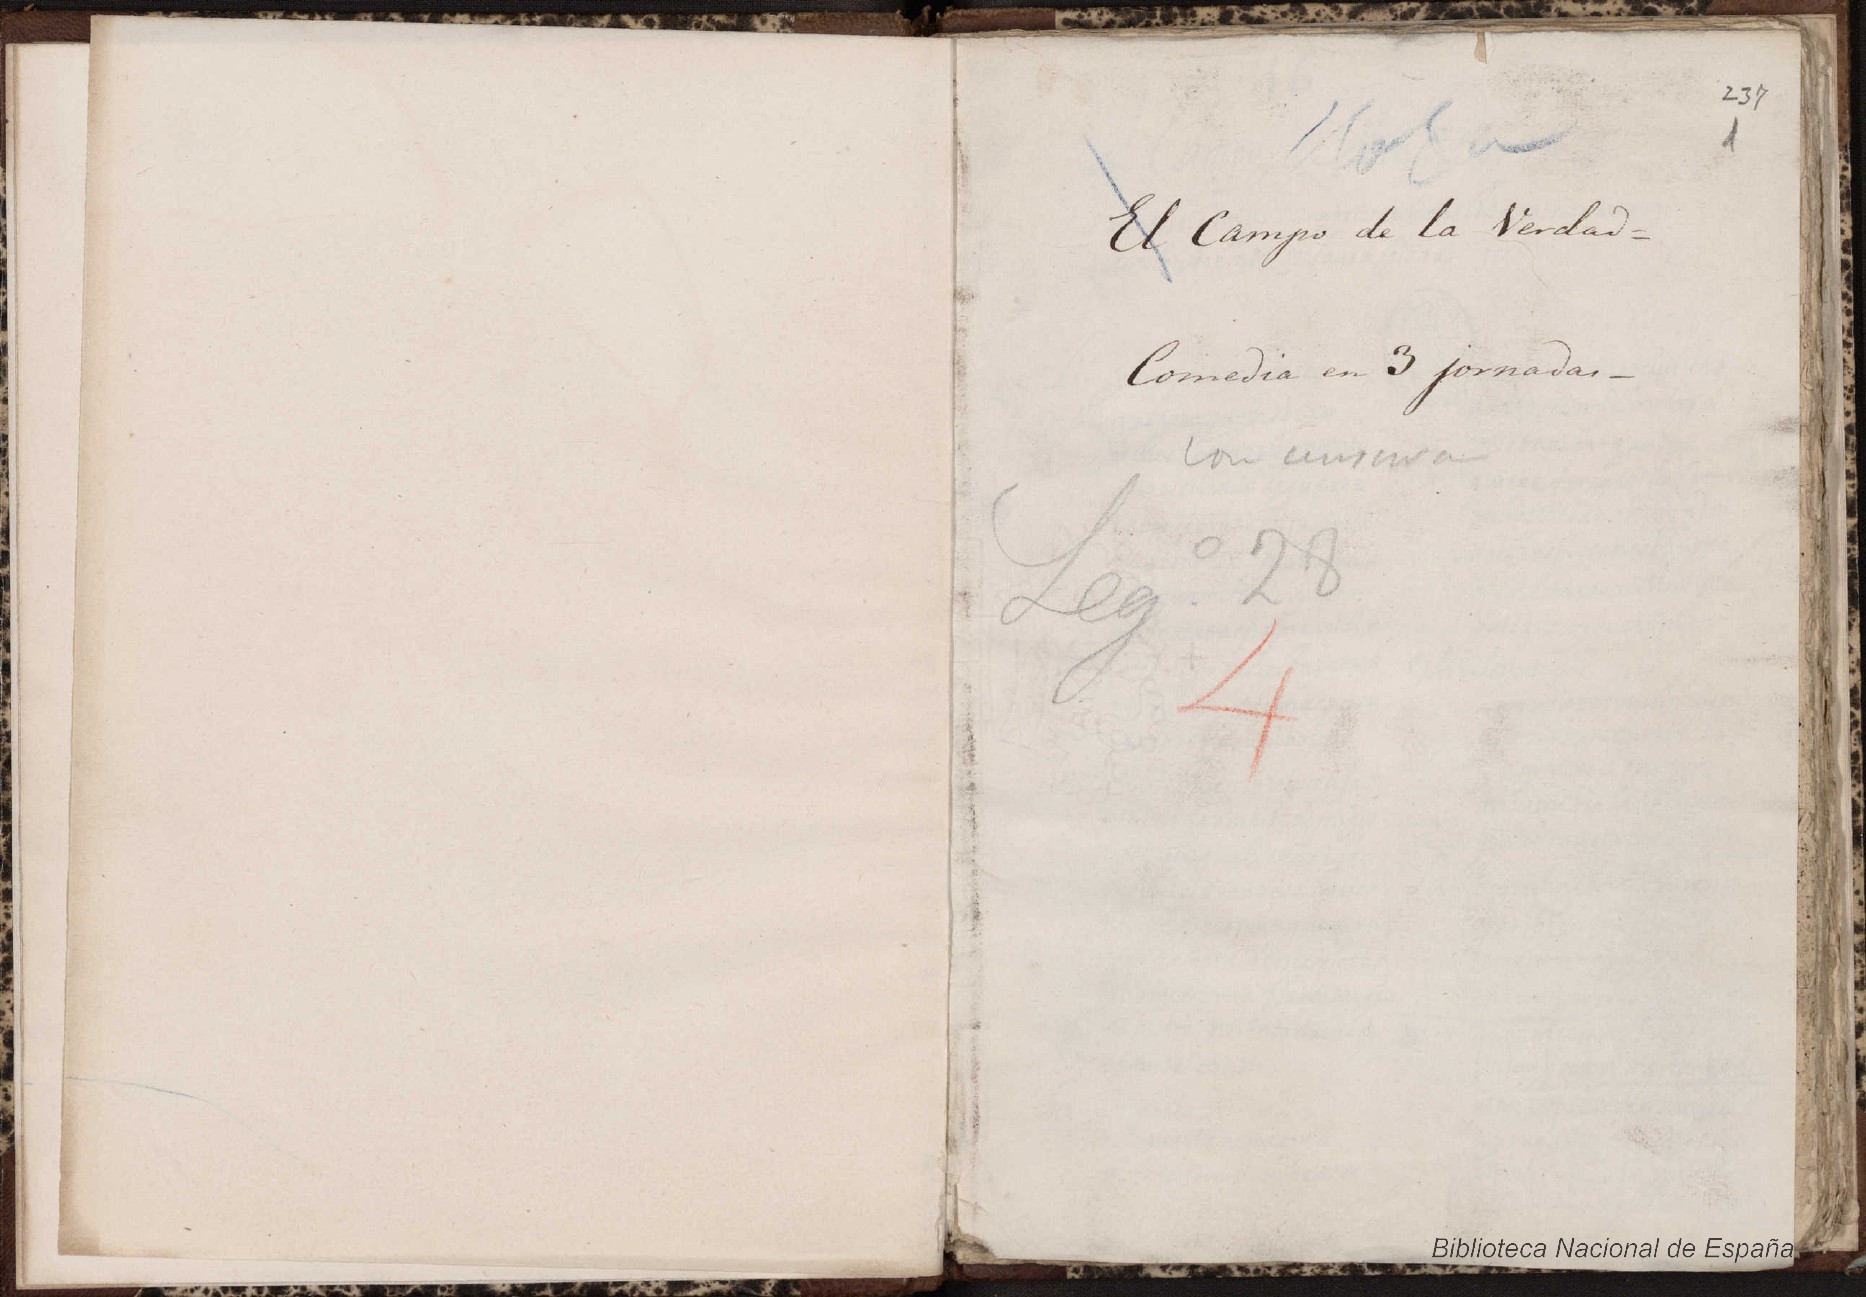 237
1
El Campo de la Verdad=
Comedia en 3 jornadas-
con censura
Leg.º 28
+
4
Biblioteca Nacional de España